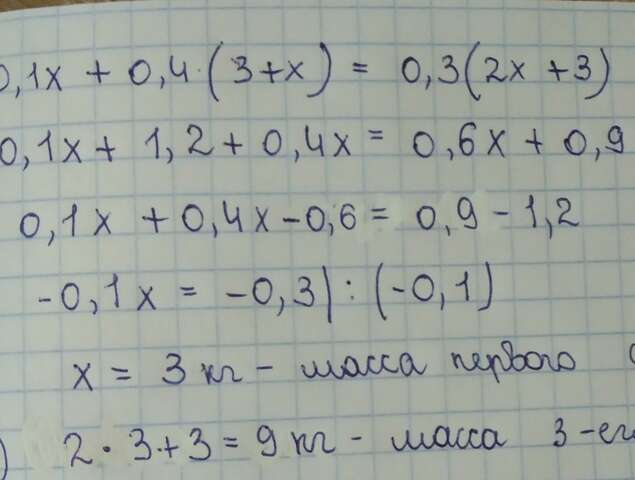 0,1x + 0,4·(3+x) = 0,3(2x+3)
0,1x + 1,2 + 0,4x = 0,6x + 0,9
0,1x + 0,4x - 0,6 = 0,9 - 1,2
-0,1x = -0,3|:(-0,1)
x = 3 кг - масса первого
) 2·3+3 = 9 кг - масса 3-ег